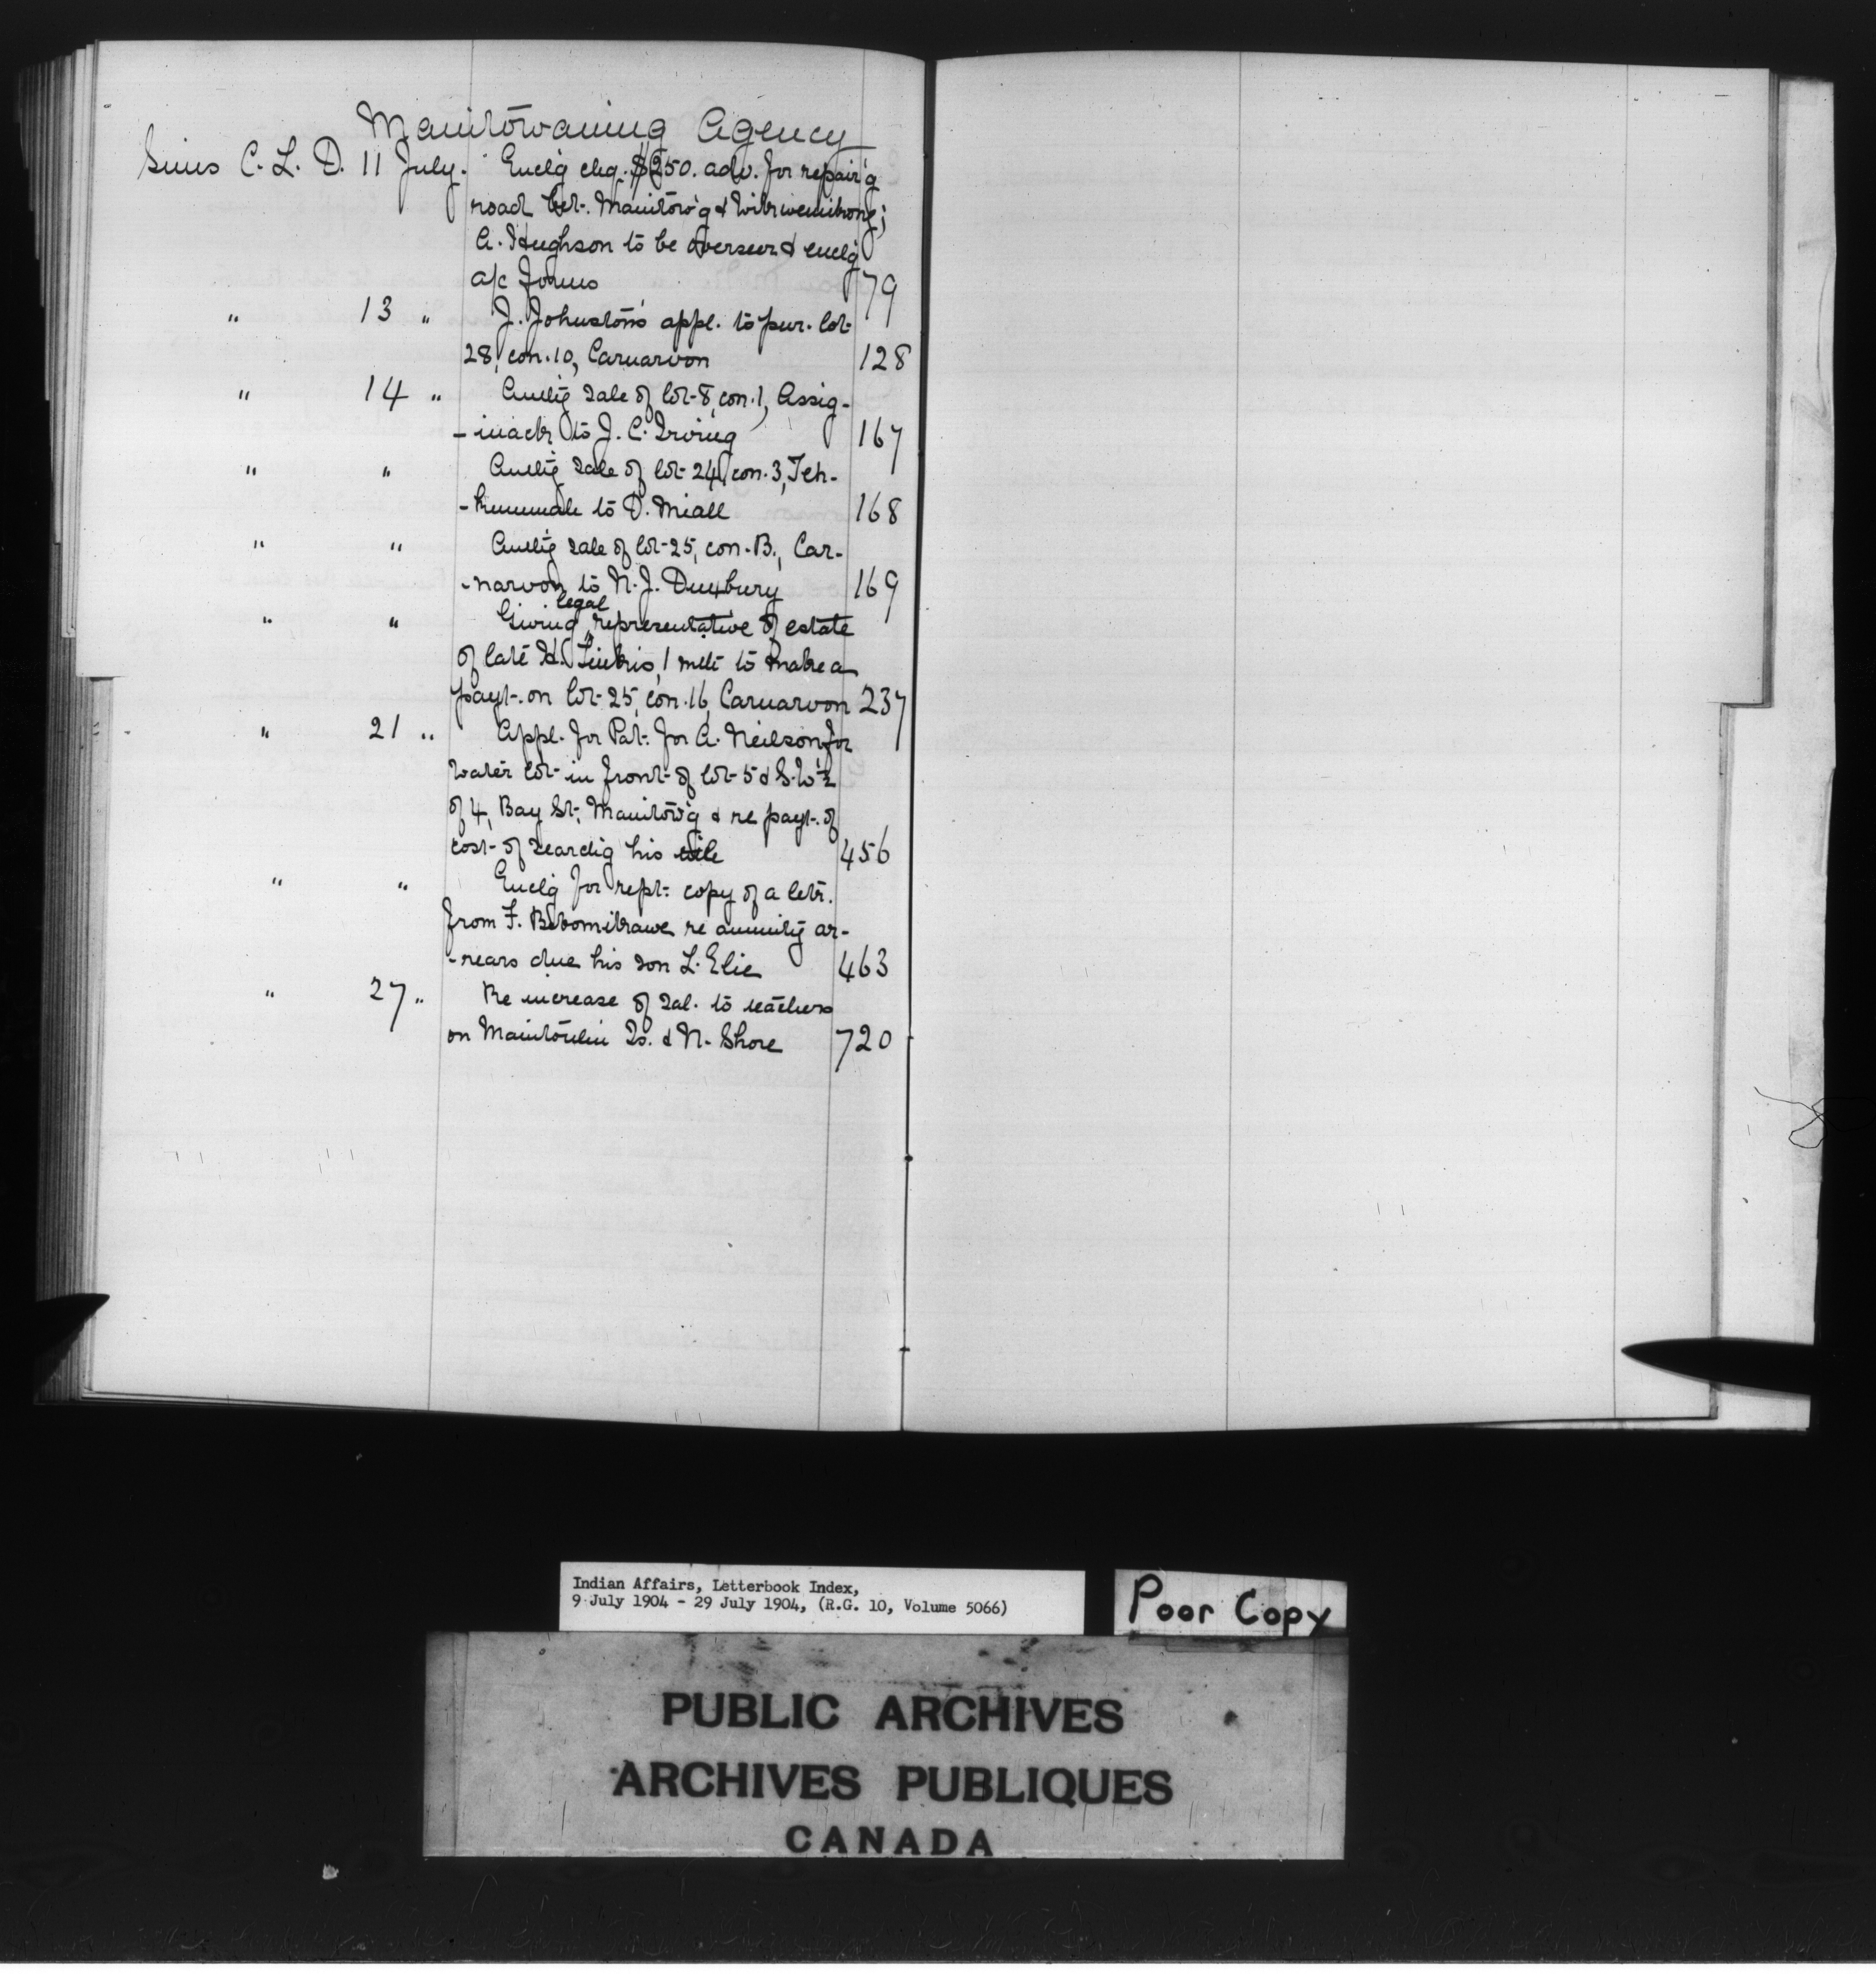 Manitowaning Agency
Sims C. L. D. 11 July. Encl'g chq. $250. adv. for repair'g
road bet. Manitow'g & Wikwemikong;
A. Hughson to be overseer & encl'g
a/c forms 79
" 13 " J. Johnston's appl. to pur. lot
28, con. 10, Carnarvon 128
" 14 " Auth'g sale of lot 8, con. 1, Assig-
-inack to J. C. Irving 167
" " Auth'g sale of lot 24, con. 3, Teh-
-kummah to D. Miall 168
" " Auth'g sale of lot 25, con. B., Car-
-narvon to N. J. Duxbury 169
legal
" " Giving representative of estate
of late H. 1 mth to make a
payt. on lot 25, con. 16, Carnarvon 237
" 21 " Appl. for Pat. for A. Neilson for
water lot in front of lot 5 & S.W ½
of 4, Bay St., Manitow'g & re payt. of
cost of search'g his title 456
" " Encl'g for rept. copy of a letr.
from F. re annuity ar-
-rears due his son L. Elie 463
" 27 " Re increase of sal. to teachers
on Manitoulin Is. & N. Shore 720
Indian Affairs, Letterbook Index,
9 July 1904 - 29 July 1904, (R.G. 10, Volume 5066)
Poor Copy
PUBLIC ARCHIVES
ARCHIVES PUBLIQUES
CANADA